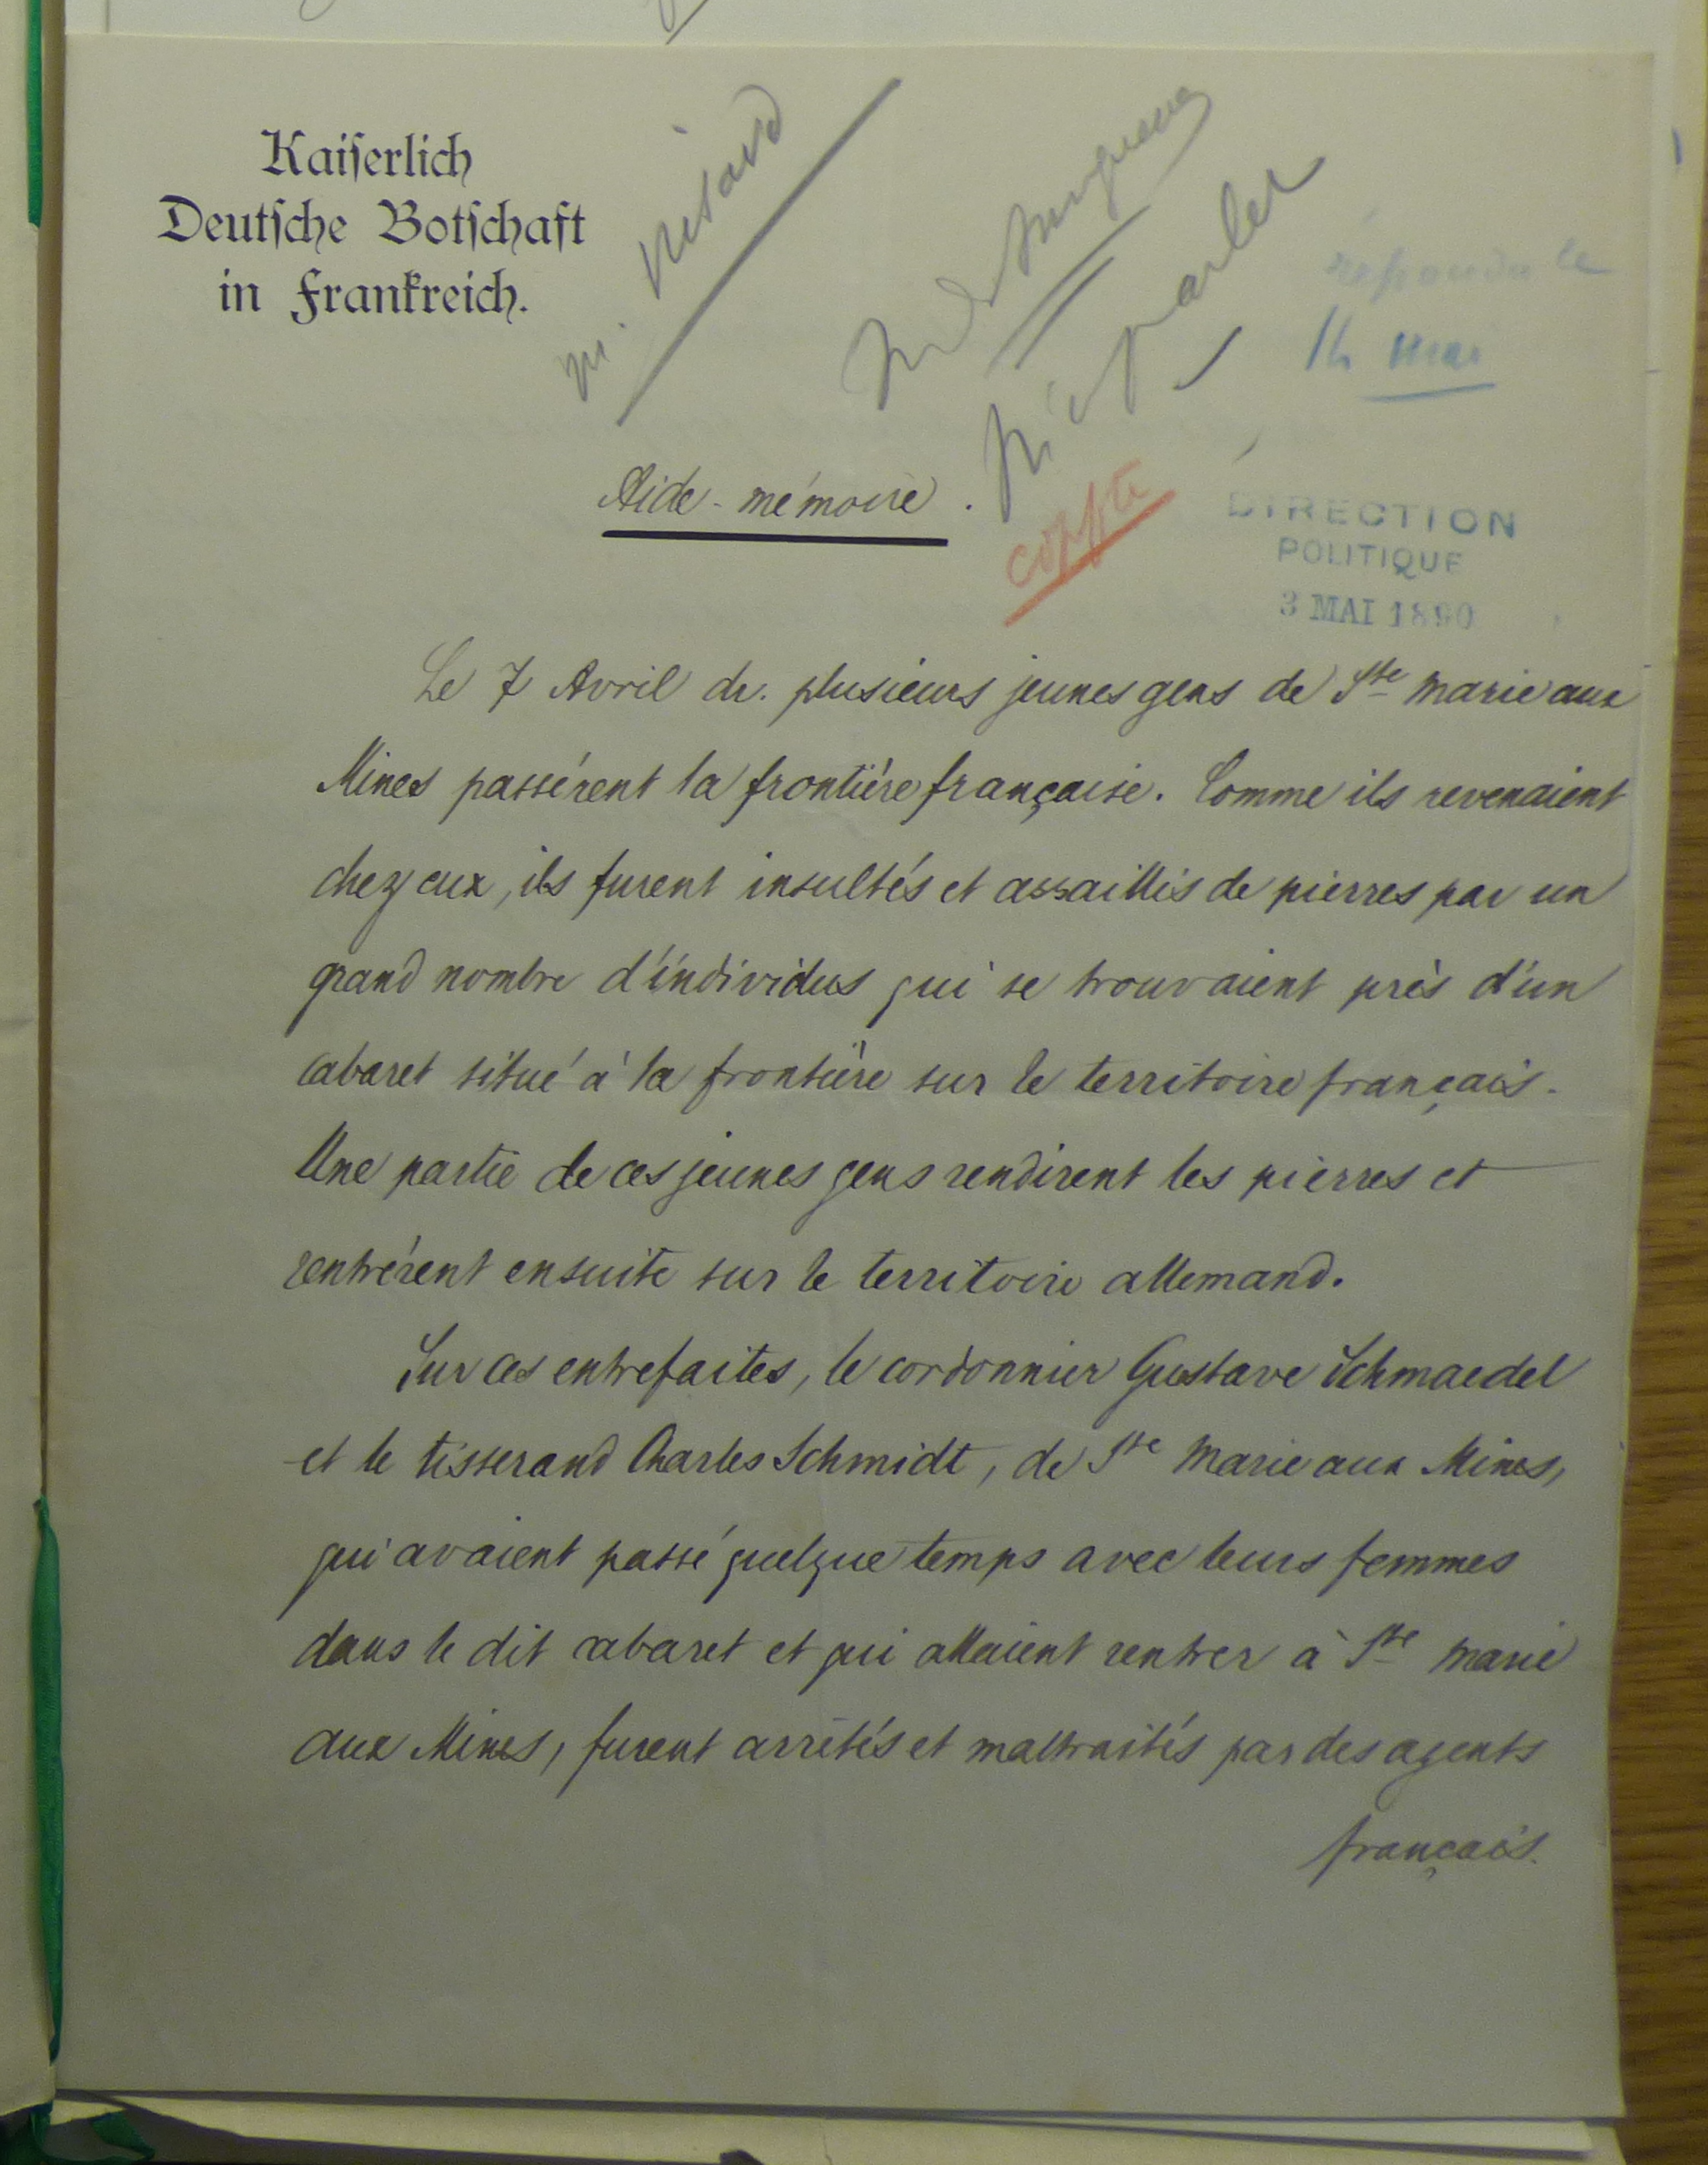 Kaiserlich
Deutsche Botschaft
in Frankreich.
M. Nisard
M'en parler
répondu le
14 mai
Aide-mémoire.
DIRECTION
POLITIQUE
3 MAI 1890
Le 7 Avril dr. plusieurs jeunes gens de Ste Marie aux
Mines passèrent la frontière française. Comme ils revenaient
chez eux, ils furent insultés et assaillis de pierres par un
grand nombre d'individus qui se trouvaient près d'un
cabaret situé à la frontière sur le territoire français.
Une partie de ces jeunes gens rendirent les pierres et
rentrèrent ensuite sur le territoire allemand.
Sur ces entrefaites, le cordonnier Gustave Schmaedel
et le tisserand Charles Schmidt, de Ste Marie aux Mines,
qui avaient passé quelque temps avec leurs femmes
dans le dit cabaret et qui allaient rentrer à Ste Marie
aux Mines, furent arrêtés et maltraités par des agents
français.